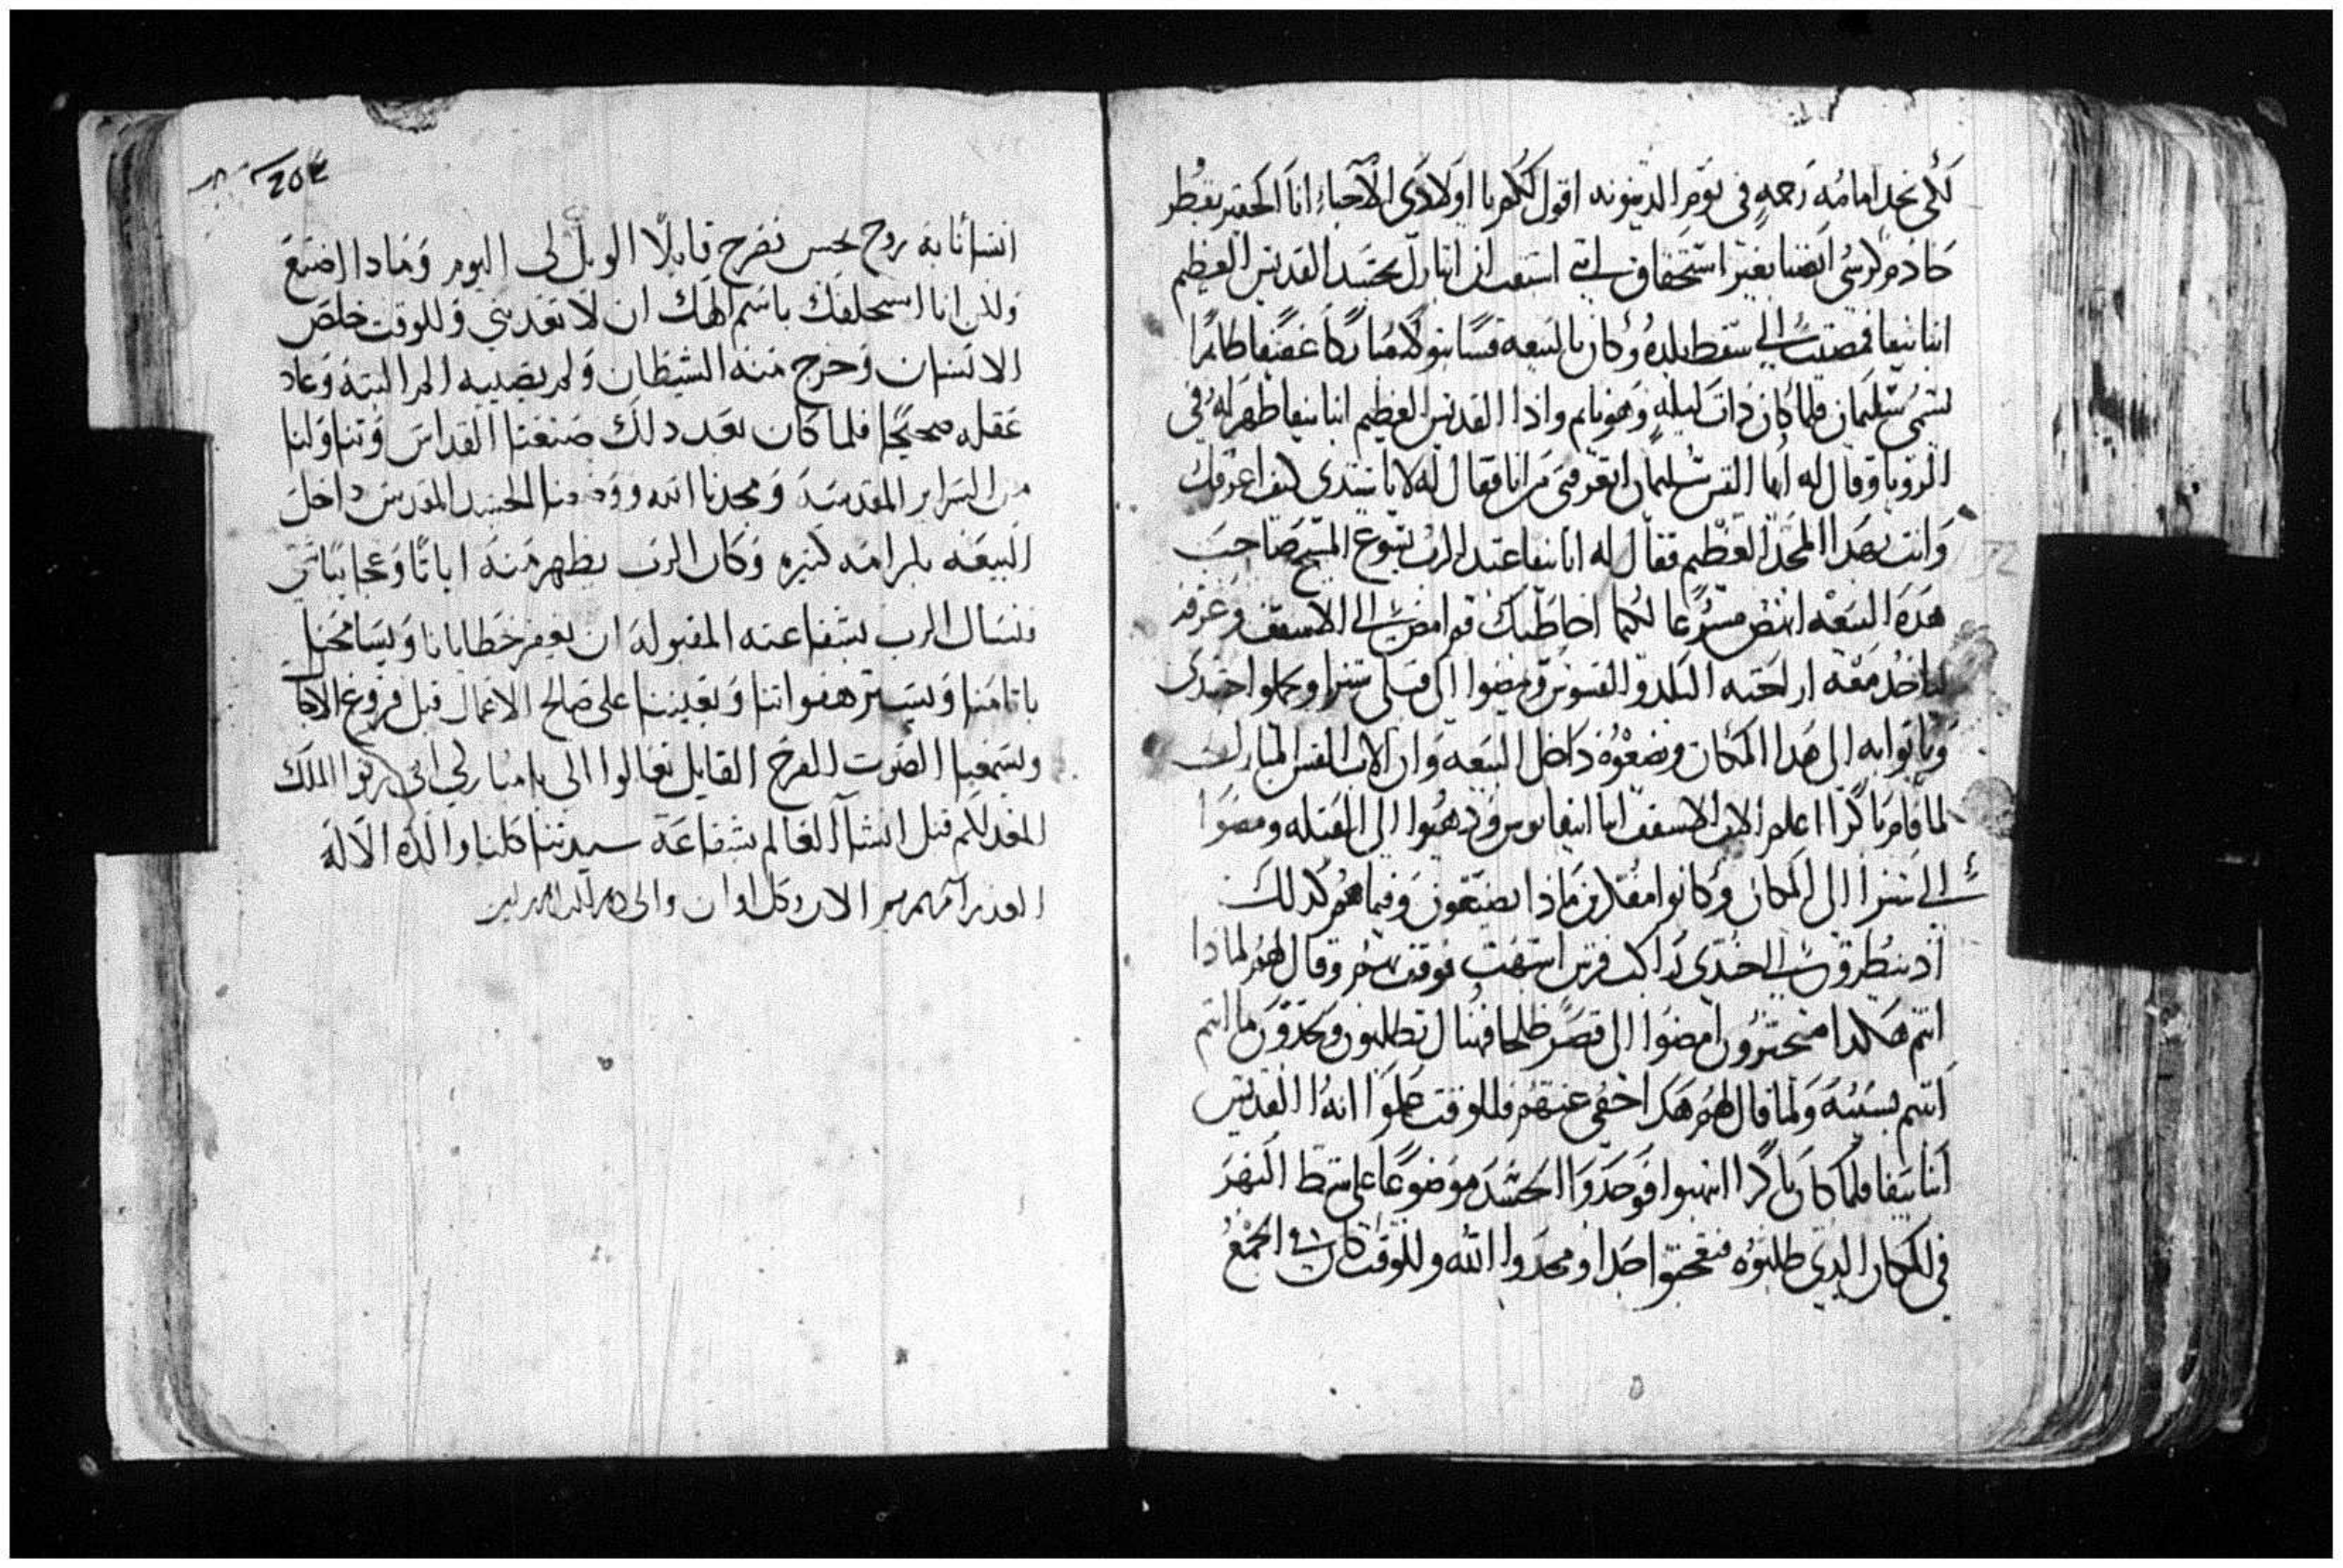 لكى نجد امامه رحمه فى يوم الدينونه اقول لكم يا اولادى الاحباء انا الحقير بقطر
خادم كرسى ايضا بغير استحقاق انى استقت ان ابارك بجسد القديس العظيم
انبا نيفا فمضيت الى سقط بلده وكان بالبيعه قسا بتولا مباركا عفيفا طاهرا
يسمى سليمان فلما كان ذات ليله وهو نايم واذا القديس العظيم انبا نيفا ظهر له فى
الرويا وقال له ايها القس سليمان اتعرفنى من انا فقال له لا يا سيدى كيف اعرفك
وانت بهدا المجد العظيم فقال له انا نيفا عبد الرب يسوع المسيح صاحب
هده البيعه انهض مسرعا لكيما اخاطبك قم امض الى الاسقف وعرفه
لياخد معه اراخنة البلد والقسوس ويمضوا الى قبلى شنرا وحملوا جسدى
وياتوا به الى هدا المكان ويضعوه داخل البيعه وان الاب القس المبارك
لما قام باكرا اعلم الاب الاسقف ودهبوا الى القبله ومضوا
الى شنرا الى المكان وكانوا مفكرين ماذا يصنعون وفيما هم كدلك
اذ نظروا الى جندى راكب فرس اشهب فوقف بهم وقال لهم لماذا
انتم هكدا متحيرون امضوا الى قصر فهناك تطلبون وتجدون ما انتم
اتيتم بسببه ولما قال لهم هدا خفى عنهم فللوقت علموا انه القديس
انبا نيفا فلما كان باكرا انتبهوا فوجدوا الجسد موضوعا على شط النهر
فى المكان الدى طلبوه فتعجبوا جدا ومجدوا الله وللوقت كان فى الجمع
204
انسانا به روح نجس تصرخ قايلا الويل لى اليوم وماذا اصنع
ولكن انا استحلفك باسم الهك ان لا تعدبنى وللوقت خلص
الانسان وخرج منه الشيطان ولم يصيبه الم البته وعاد
عقله صحيحا فلما كان بعد دلك صنعنا القداس وتناولنا
من السراير المقدسه ومجدنا الله ووضعنا الجسد المقدس داخل
البيعه بكرامه كثيره وكان الرب يظهر منه اياتا وعجايبا شتى
فنسال الرب بشفاعته المقبوله ان يغفر خطايانا ويسامحنا
باثامنا ويستر هفواتنا ويعيننا على صالح الاعمال قبل فروغ الاجال
ويسمعنا الصوت الفرح القايل تعالوا الى يا مباركى ابى رثوا الملك
المعد لكم قبل انشا العالم بشفاعة سيدتنا كلنا والدة الاله
العدرا مرتمريم الان وكل اوان والى دهر الداهرين